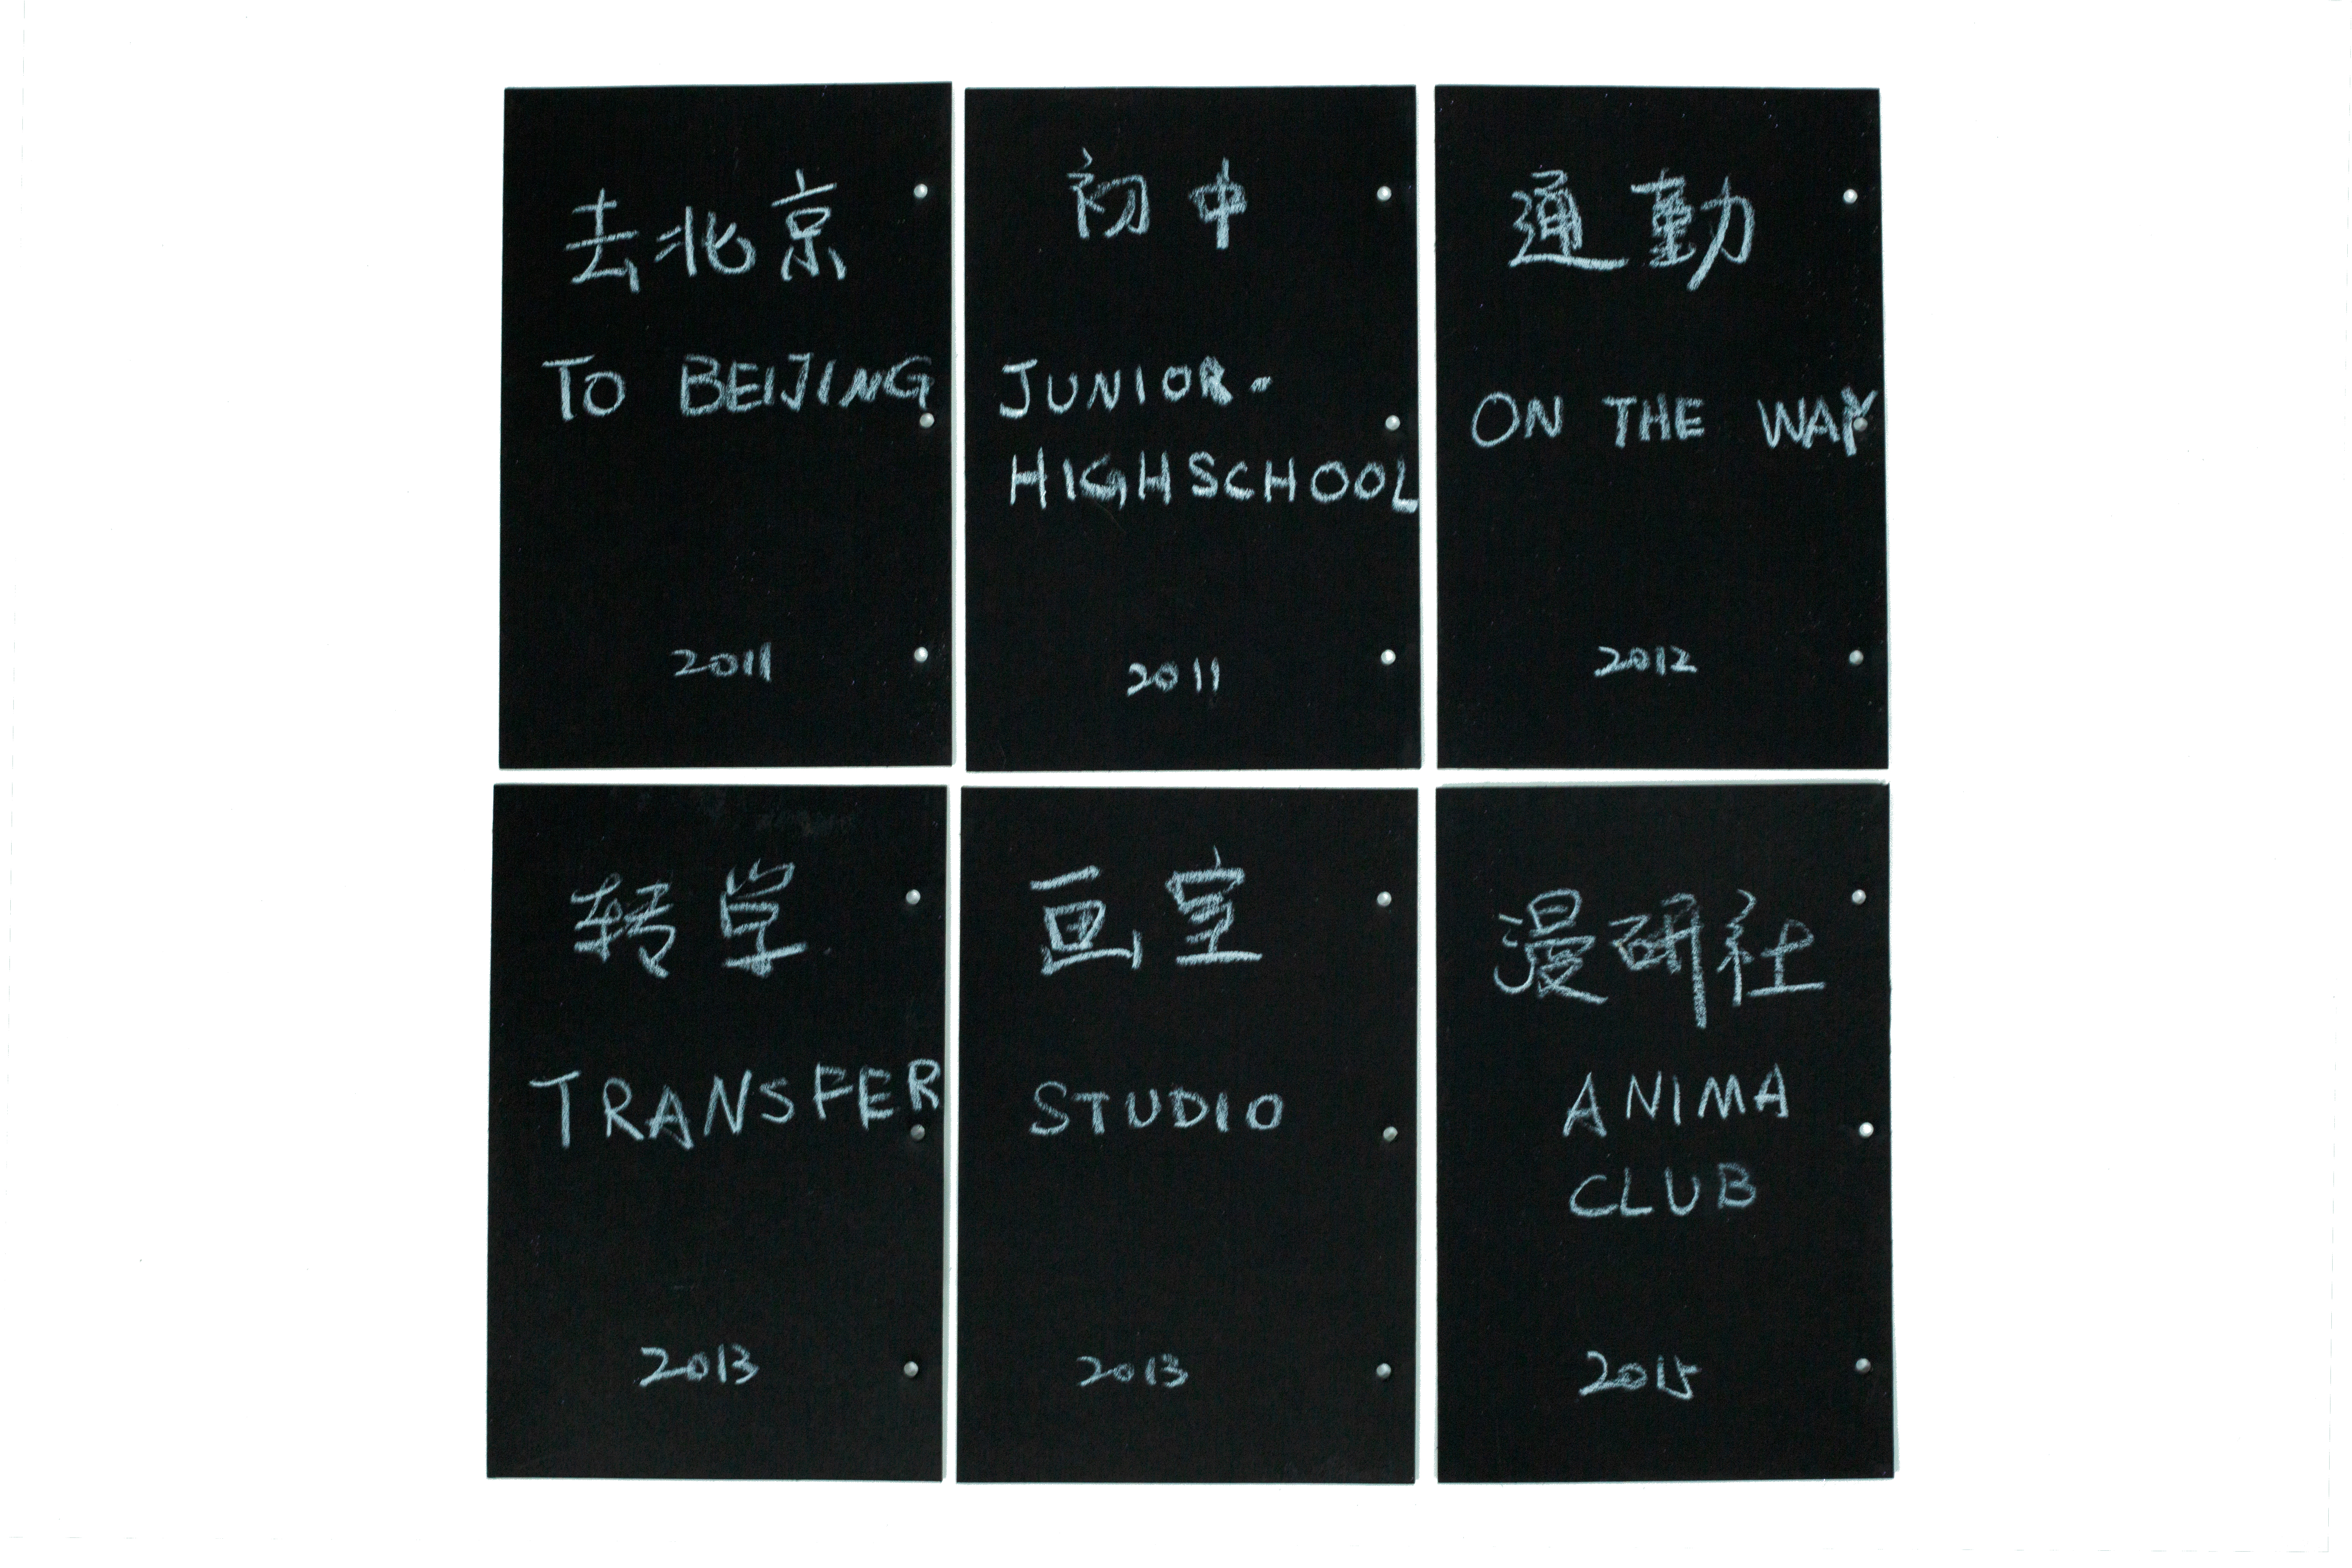 去北京
TO BEIJING
2011
初中
JUNIOR-
HIGHSCHOOL
2011
通勤
ON THE WAY
2012
转学
TRANSFER
2013
画室
STUDIO
2013
漫研社
ANIMA
CLUB
2015